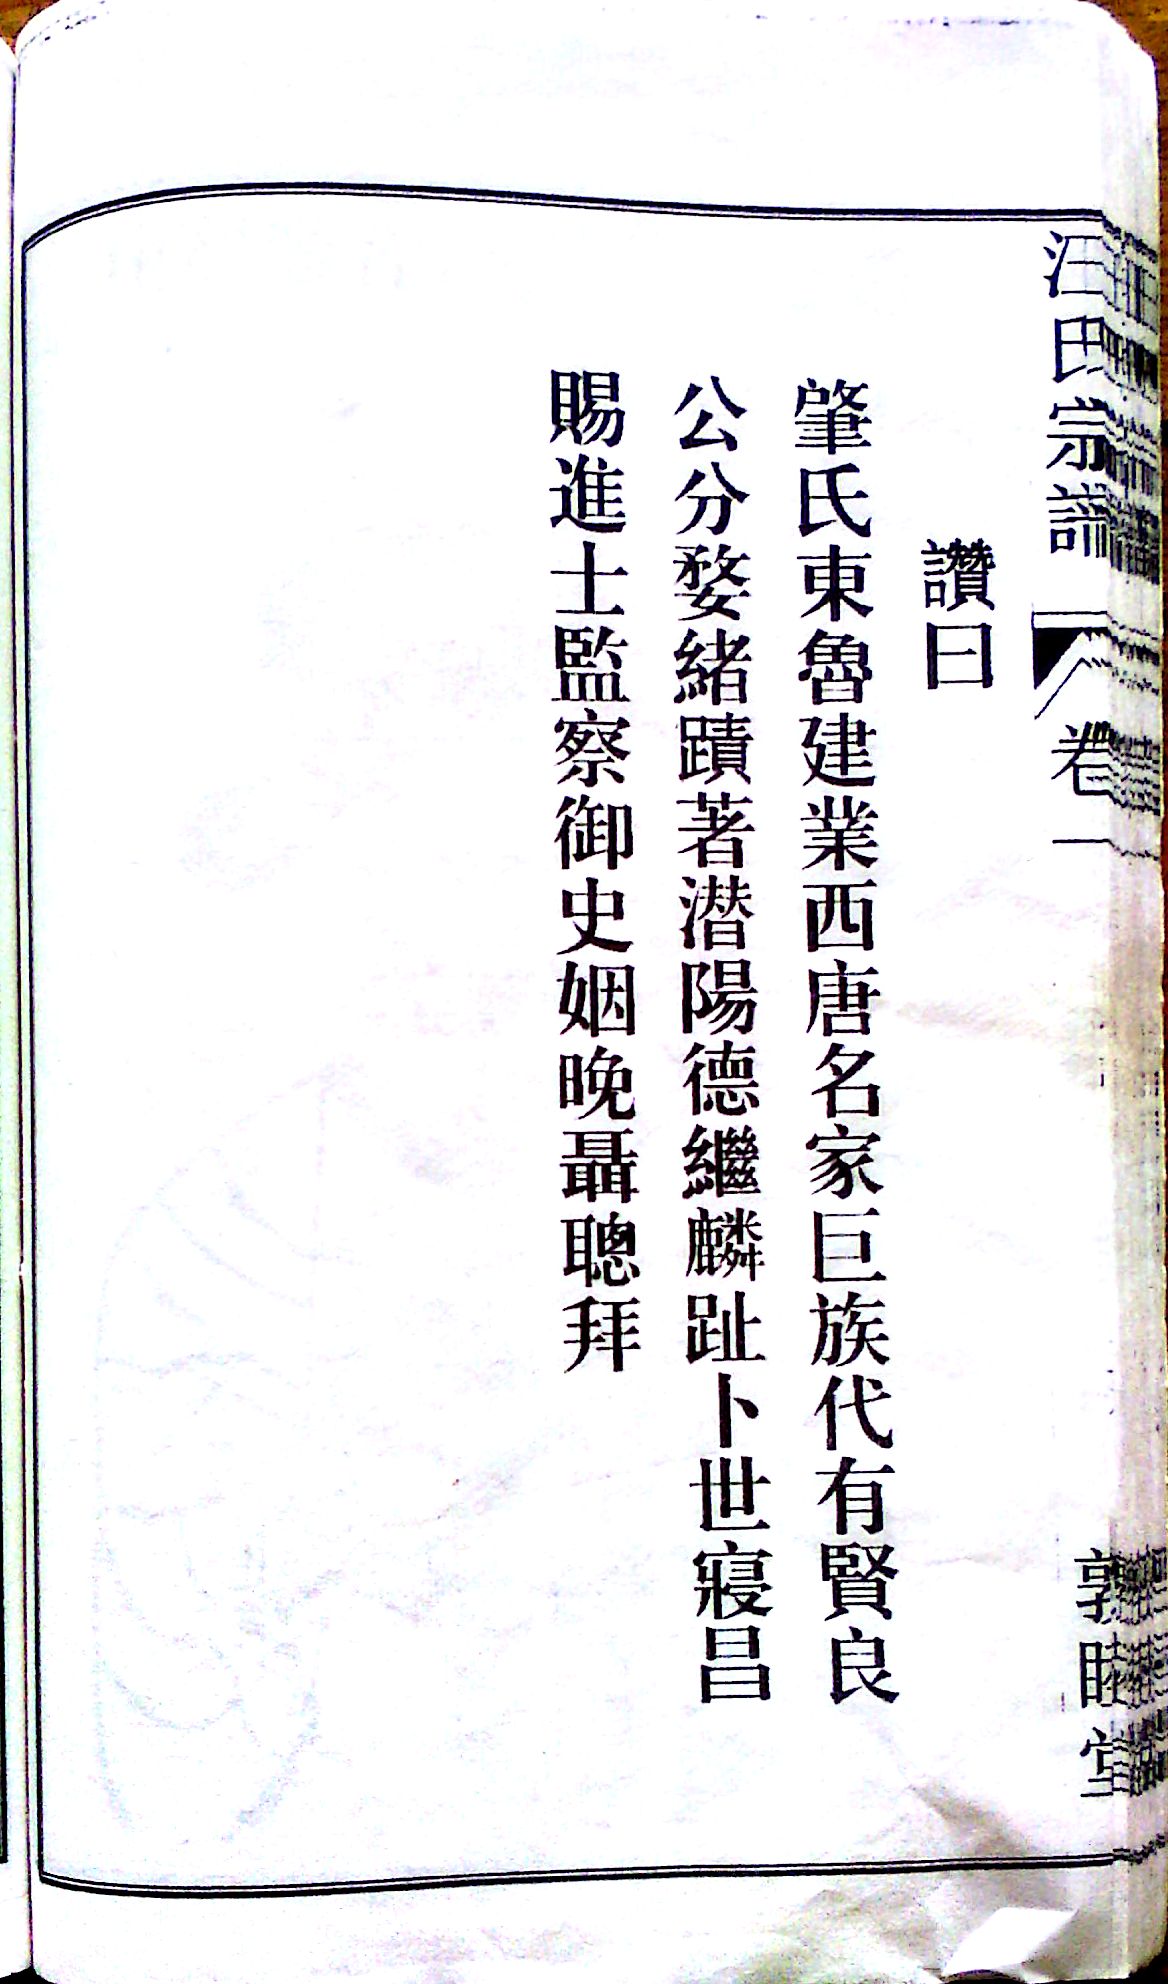 汪氏宗譜
卷一
敦睦堂
讚曰
肇氏東魯建業西唐名家巨族代有賢良
公分婺緒蹟著潜陽德繼麟趾卜世寢昌
賜進士監察御史姻晚聶聰拜